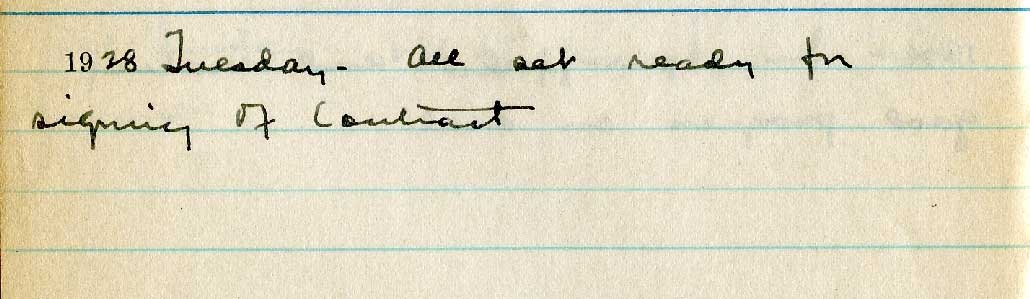 1938 Tuesday - All set ready for
signing of Contract